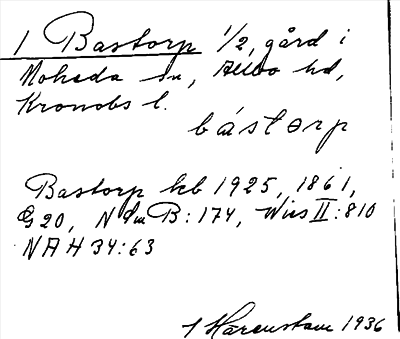 1 Bastorp 1/2, gård i
Moheda sn, Allbo hd,
Kronobs l.
båstorp
Bastorp kb 1925, 1861,
G20, N Sm B: 174, Wies II: 810
NAH 34:63
1936